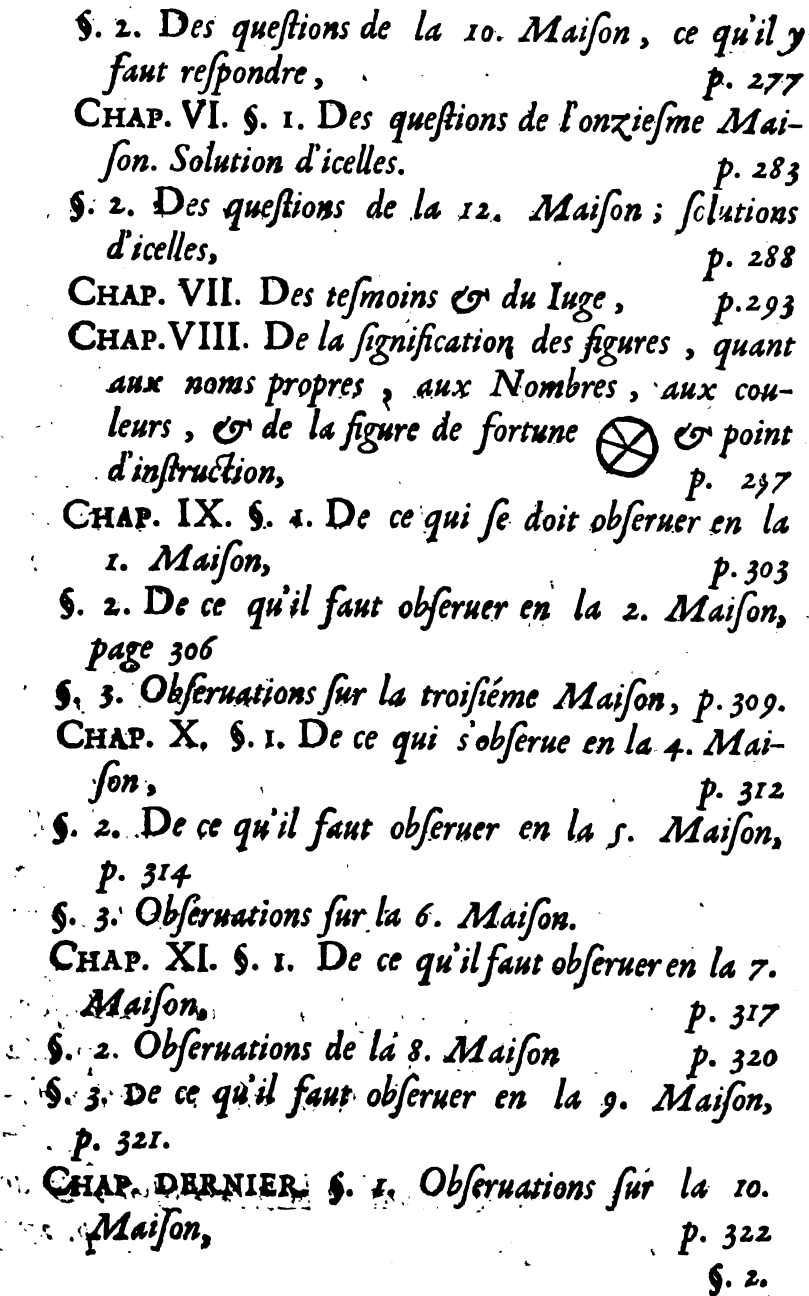 §. 2. Des queſtions de la 10. Maiſon, ce qu'il y
faut reſpondre, p. 277
CHAP. VI. §. 1. Des queſtions de l'onzieſme Mai-
ſon. Solution d'icelles. p. 283
§. 2. Des queſtions de la 12. Maiſon; ſolutions
d'icelles, p. 288
CHAP. VII. Des teſmoins & du Iuge, p. 293
CHAP. VIII. De la ſignification des figures, quant
aux noms propres, aux Nombres, aux cou-
leurs, & de la figure de fortune & point
d'inſtruction, p. 297
CHAP. IX. §. 1. De ce qui ſe doit obſeruer en la
1. Maiſon, p. 303
§. 2. De ce qu'il faut obſeruer en la 2. Maiſon,
page 306
§. 3. Obſeruations ſur la troiſiéme Maiſon, p. 309.
CHAP. X. §. 1. De ce qui s'obſerue en la 4. Mai-
ſon, p. 312
§. 2. De ce qu'il faut obſeruer en la 5. Maiſon,
p. 314
§. 3. Obſeruations ſur la 6. Maiſon.
CHAP. XI. §. 1. De ce qu'il faut obſeruer en la 7.
Maiſon, p. 317
§. 2. Obſeruations de la 8. Maiſon p. 320
§. 3. De ce qu'il faut obſeruer en la 9. Maiſon,
p. 321.
CHAP. DERNIER. §. 1. Obſeruations ſur la 10.
Maiſon, p. 322
§. 2.